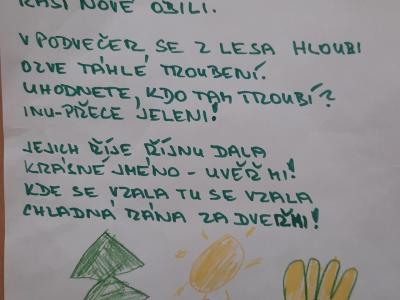 RAŠÍ NOVÉ OBILÍ.
V PODVEČER, SE Z LESA HLOUBI
OZVE TÁHLÉ TROUBENÍ.
UHODNETE, KDO TAM TROUBÍ?
INU-PŘECE JELENI!
JEJICH ŘÍJE ŘÍJNU DALA
KRÁSNÉ JMÉNO - UVĚŘ MI!
KDE SE VZALA TU SE VZALA
CHLADNÁ RÁNA ZA DVEŘMI!